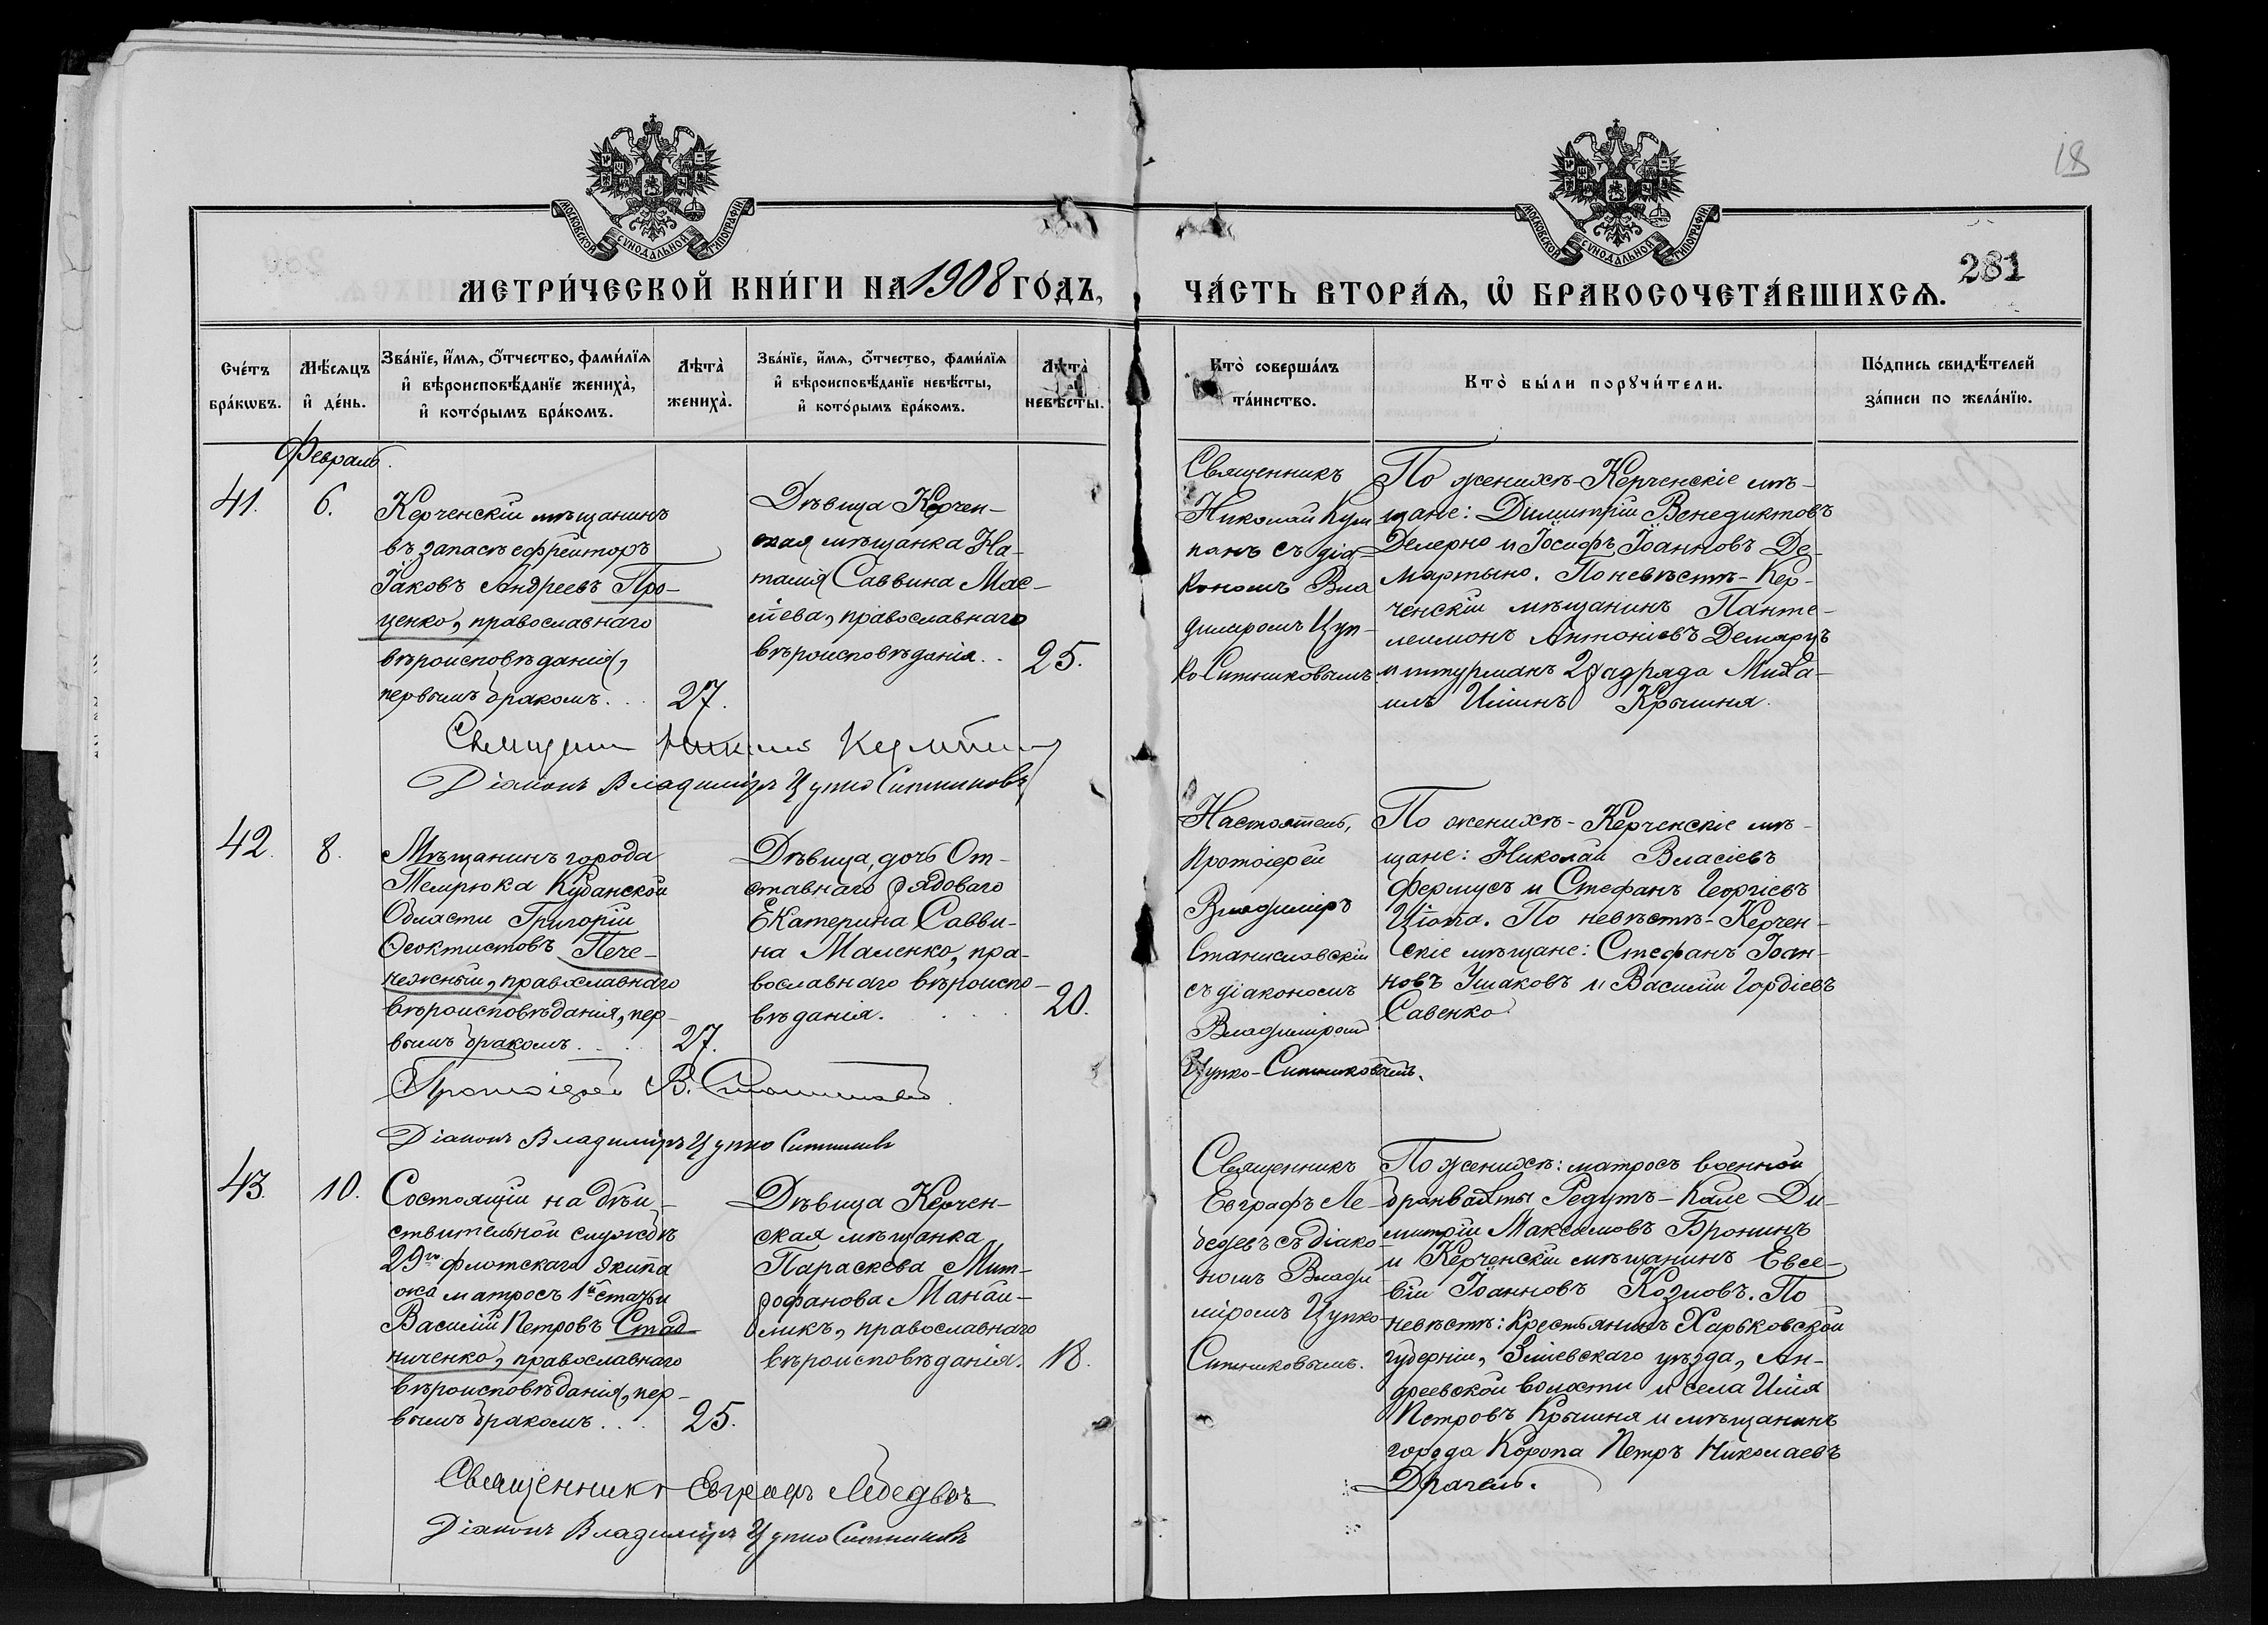 18
МОСКОВСКОЙ СѴНОДАЛЬНОЙ ТИПОГРАФІИ
МОСКОВСКОЙ СѴНОДАЛЬНОЙ ТИПОГРАФІИ
281
МЕТРИ́ЧЕСКОЙ КНИ́ГИ НА 1908 ГО́ДЪ,
ЧА́СТЬ ВТОРА́Ѧ, Ѡ҆ БРАКОСОЧЕТА́ВШИХСѦ.
Сче́тъ
бра́кѡвъ.
Мѣ́сѧцъ
и҆ де́нь.
Зва́нїе, и҆́мѧ, ѻ҆́тчество, фами́лїѧ
и҆ вѣроисповѣ́данїе жениха̀,
и҆ кото́рымъ бра́комъ.
Лѣ́та̀
жениха̀.
Зва́нїе, и҆́мѧ, ѻ҆́тчество, фами́лїѧ
и҆ вѣроисповѣ́данїе невѣ́сты,
и҆ кото́рымъ бра́комъ.
Лѣ́та̀
невѣ́сты.
Кто̀ соверша́лъ
та́инство.
Кто̀ бы́ли порꙋчи́тели.
По́дпись свидѣ́телей
за́писи по жела́нїю.
Февраль.
41.
6.
Керченскій мѣщанинъ
въ запасѣ ефрейторъ
Іаковъ Андреевъ Про-
ценко, православнаго
вѣроисповѣданія,
первымъ бракомъ...
27.
Дѣвица Керчен-
ская мѣщанка На-
талія Саввина Мас-
лѣева, православнаго
вѣроисповѣданія..
25.
Священникъ
Николай Кум
панъ съ діа-
кономъ Вла
диміромъ Цуп-
ко-Ситниковымъ.
По женихѣ-Керченскіе мѣ-
щане: Димитрій Венедиктовъ
Делерно и Іосифъ Іоанновъ Де-
мартыно. По невѣстѣ-Кер-
ченскій мѣщанинъ Панте-
леимонъ Антоніевъ Демаруъ
и штурманъ 2 разряда Миха-
илъ Ильинъ Крышня.
Діаконъ Владиміръ Цупко Ситниковъ
42.
8.
Мѣщанинъ города
Темрюка Кубанской
Области Григорій
Ѳеоктистовъ Пече-
нежный, православнаго
вѣроисповѣданія, пер-
вымъ бракомъ....
27.
Дѣвица, дочь От-
ставнаго рядоваго
Екатерина Савви-
на Маленко, пра-
вославнаго вѣроиспо-
вѣданія.
20.
Настоятель,
Протоіерей
Владиміръ
Станиславскій
съ діакономъ
Владиміромъ
Цупко-Ситниковымъ.
По женихѣ-Керченскіе мѣ-
щане: Николай Власіевъ
Фермусъ и Стефанъ Георгіевъ
По невѣстѣ-Керчен-
скіе мѣщане: Стефанъ Іоан-
новъ Ушаковъ и Василій Гордіевъ
Савенко.
Протоіерей В.
Діаконъ Владиміръ Цупко Ситниковъ
43.
10.
Состоящій на дѣй-
ствительной службѣ
29го флотскаго экипа
жа матросъ 1й статьи
Василій Петровъ Стад
ниченко, православнаго
вѣроисповѣданія, пер-
вымъ бракомъ....
25.
Дѣвица Керчен-
ская мѣщанка
Параскева Мит-
рофанова Манай-
ликъ, православнаго
вѣроисповѣданія.
18.
Священникъ
Евграфъ Ле-
бедевъ съ діако-
номъ Влади
міромъ Цупко-
Ситниковымъ.
По женихѣ: матросъ военной
брандвахты Редутъ-Кале Ди-
митрій Максимовъ Бронинъ
и Керченскій мѣщанинъ Евсе-
вій Іоанновъ Козловъ. По
невѣстѣ: крестьянинъ Харьковской
губерніи, Зміевскаго уѣзда, Ан-
дреевской волости и села Илія
Петровъ Крышня и мѣщанинъ
города Коропа Петръ Николаевъ
Драчель.
Священникъ Евграфъ Лебедевъ
Діаконъ Владиміръ Цупко Ситниковъ